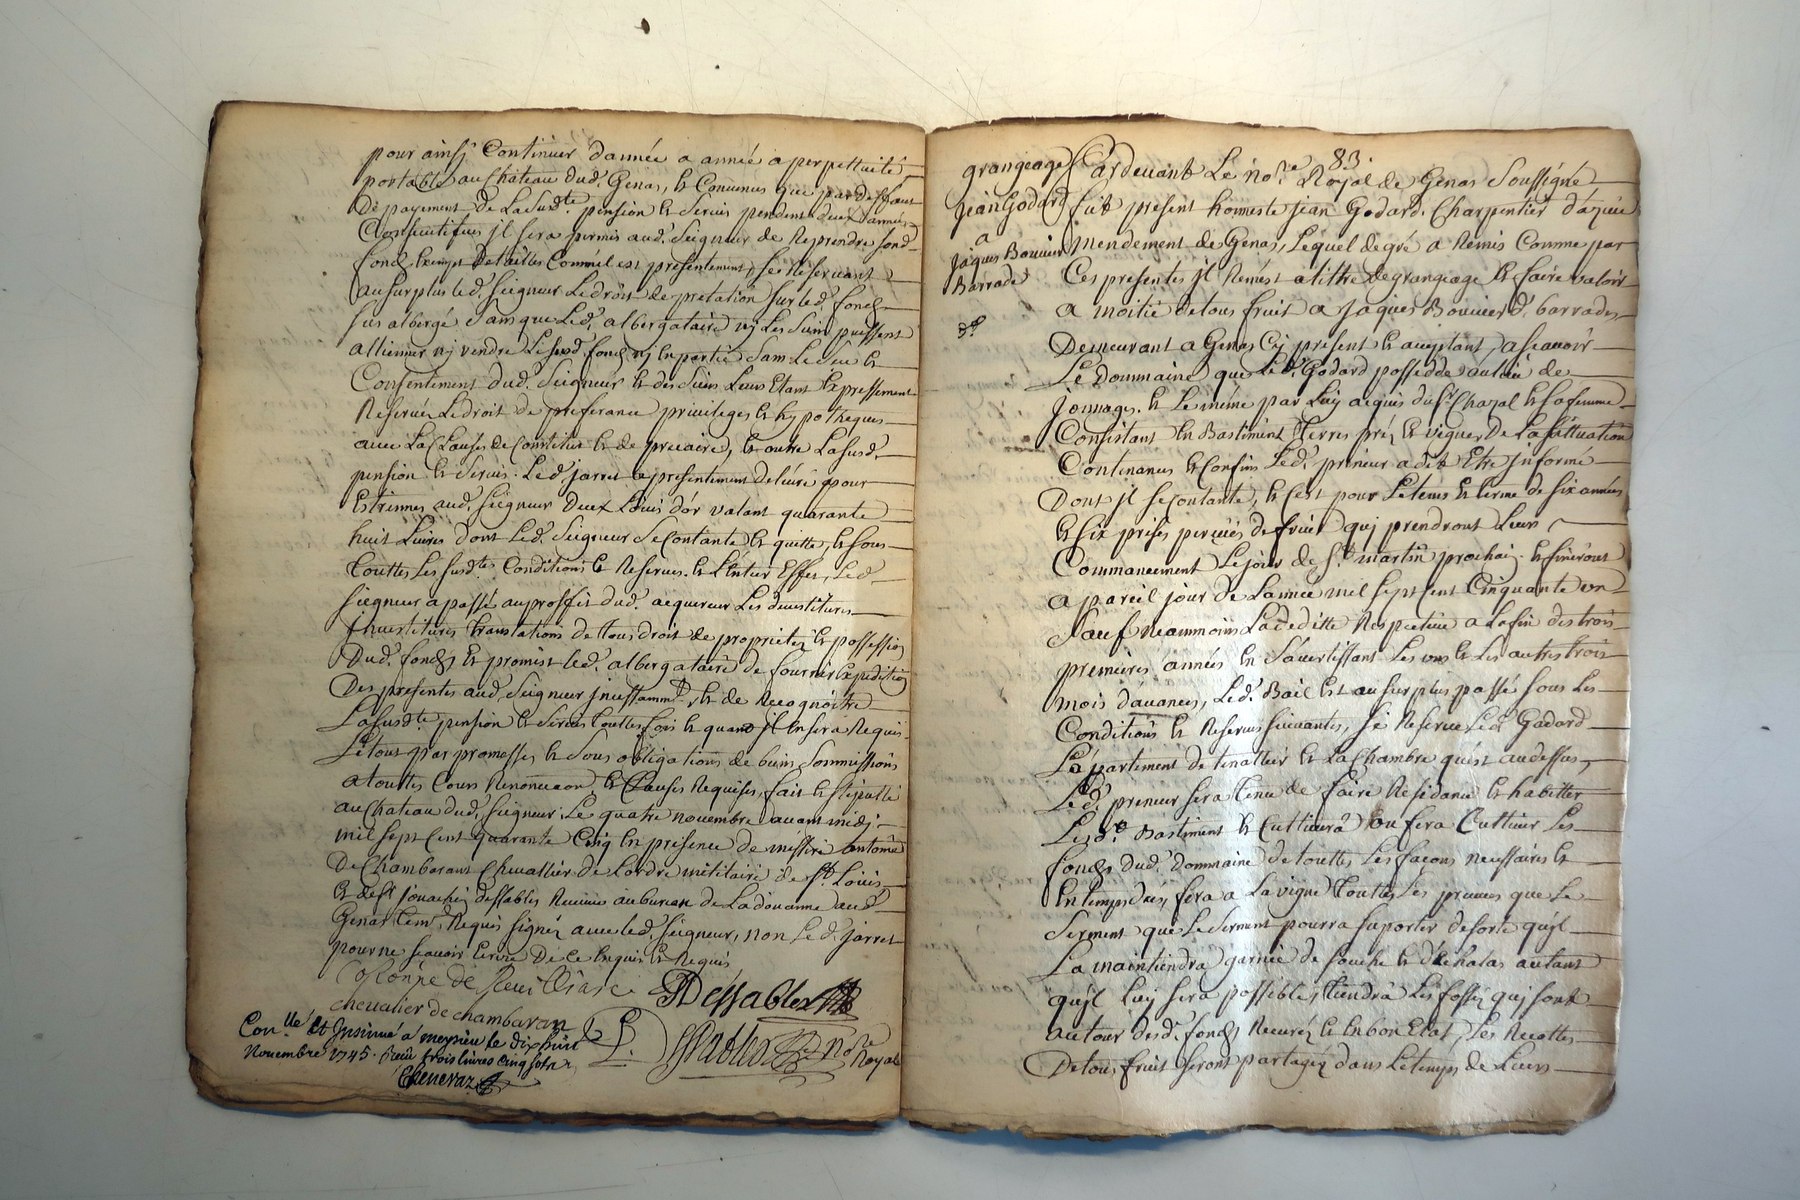 pour ainsy Continuer d'année a année a perpettuité
portable au Chateau dud. Genas, et Convenus que par deffaut
De payement de La susd.te pension et servis pendent deux années
Consecutifves jl sera permis aud. Seigneur de Reprendre led.
fond Exempt De tailles Comm'il est presentement, se Reservant
au surplus led. seigneur Le droit de prelation sur led. fond
sus albergé sans que Led. albergataire nj Les siens puissent
alliener nj vendre Le susd. fond nj En partie sans Le sceu et
Consentement dud. Seigneur et des siens Leurs Etant Expressement
Reservée Le droit de preferance privileges et hypotheques
avec La Clauses de Constitut et de precaire, et outre La susd.
pension et servis. Led. jarret a presentement delivré pour
Estrennes aud. seigneur Deux Loüis d'or valant quarante
huit Livres dont Led. Seigneur se Contante et quitte, et sous
touttes Les susd.tes Conditions et Reserves. et L'Entier Effet, Led.
seigneur a passé au proffit dud. acquereur Les devestitures
jnvestitures translations de tous droit de proprieté et possession
Dud. fond et promist led. albergataire de fournir Expedition
Des presentes aud. Seigneur jncessamm.t, et de Recognoitre
La susd.te pension et servis touttes fois et quand jl En sera Requis
Le tout par promesses et sous obligations de biens sommissions
a touttes Cours Renonciaon, et Clauses Requises, fait et stipullé
au Chateau dud. seigneur. Le quatre novembre avant midj
mil sept Cent quarante Cinq En présence de messire antoine
De Chambarant Chevallier de L'ordre militaire de St. Loüis
et de Sr. jouachin dessables Receveur au bureau de La doüanne aud.
Genas tem. Requis signéz avec led. seigneur, non Led. jarret
pour ne sçavoir Ecrire De ce Enquis et Requis
chevallier de chambaran
Dessables
Con.lle Et Insinué a meysieu le dix huit
Novembre 1745. Receu trois livres cinq sols
Dessables No.re Royal
83.
grangeage
jean Godard
a
jaques Bouvier
Barrade
Pardevant Le no.re Royal de Genas Soussigné
fut présent honneste jean Godard. Charpentier d'azieu
mendement de Genas, Lequel de gré a Remis Comme par
Ces presentes jl Remest a tittre de grangeage et faire valoir
a moitié de tous fruit a jaques Bouvier d. barrade
Demeurant a Genas Cy présent et acceptant, a sçavoir
Le Dommaine que Led. Godard possedde au lieu de
jonnages. et Le même par Luy acquis du Sr. Chazal et sa femme
Consistant En Bastiment Terres préz et vignes De La sittuation
Continances et Confins Led. preneur a dit Etre jnformé
Dont jl se Contante, et C'est pour Le tems et terme de six années
et six prises perçües de fruit quj prendront Leurs
Commancement Le jour de St. martin prochain. et finiront
a pareil jour de L'année mil sept cent Cinquante un
Sauf neammoins La deditte Respective a La fin des trois
premières années En s'avertissant Les uns et Les autres trois
mois d'avance, Led. Bail Est au surplus passé sous Les
Conditions et Reserves suivantes, se Reserve Led. Godard
L'apartement de tinallier et La Chambre qu'est audessus,
Led. preneur sera tenu de faire Residance et habitter
Lesd.ts Bastiment et Cultivera ou fera Cultiver Les
fonds dud. Dommaine de touttes Les façons necessaires et
En temps düs, fera a La vigne touttes Les preuves que Le
Serment que Le serment pourra suporter de sorte qu'il
La maintiendra garnie de souche et d'échalas autant
qu'il Luy sera possible, tiendra Les fosséz quj sont
autour desd. fonds Recuréz et En bon Etat, Les Recottes
De tous fruit seront partagéz dans Le temps de Leurs